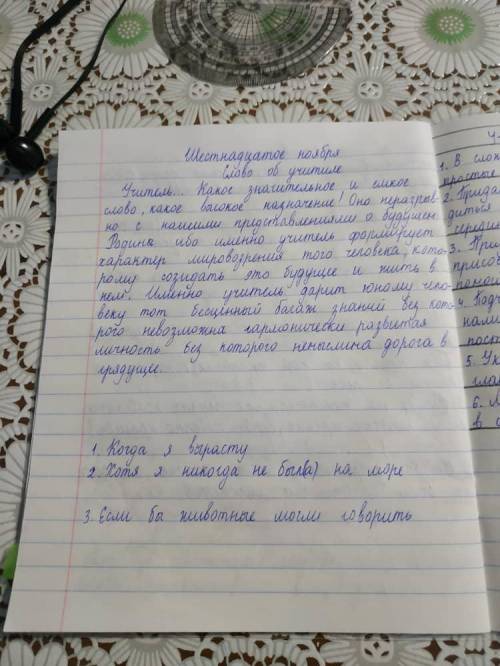 Шестнадцатое ноября
Слово об учителе
Учитель... Какое значительное и емкое
слово, какое высокое назначение! Оно неразрыв-
но с нашими представлениями о будущем
Родины ибо именно учитель формирует
характер мировоззрения того человека, кото-
рому созидать это будущее и жить в
нем. Именно учитель дарит юному чело-
веку тот бесценный багаж знаний без кото-
рого невозможна гармонически развитая
личность без которого немыслима дорога в
грядущее.
1. Когда я вырасту
2. Хотя я никогда не был(а) на море
3. Если бы животные могли говорить
1. В
простые
2. Прида
диться
3. При
присо
4. Подч
нами
пост
5. Ук
гла
6.
в с